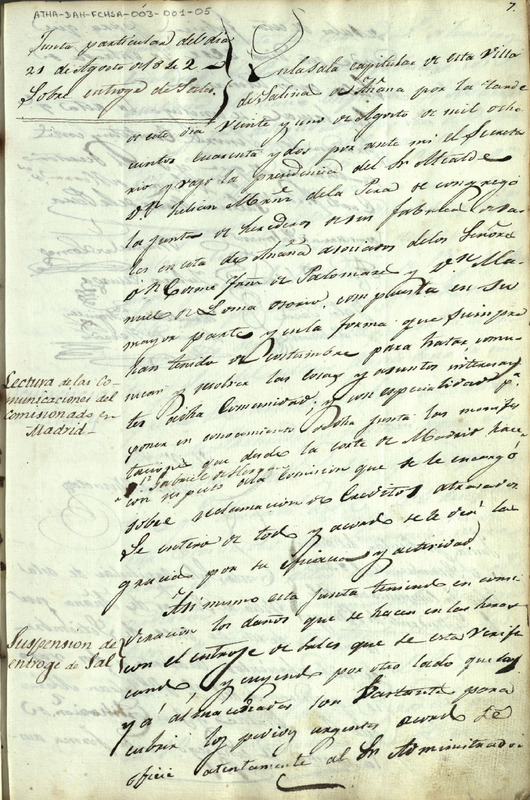 ATHA-DAH-FCHSA-003-001-05
7.
Junta particular del dia
21 de Agosto de 1842
Sobre entroge de Sales.
En la Sala capitular de esta Villa
de Salinas de Añana por la tarde
de este dia Veinte y uno de Agosto de mil ocho
cientos cuarenta y dos por ante mi el Secreta
rio y vajo la presidencia del Sr. Alcalde
Dn. Julian de la Peña se congregó
la Junta de herederos de sus fabricas de Sa
les en esta de Añana asociados de los Señores
Dn. Cosme de Palomares y Dn. Ma
nuel de Loma Osorio, compuesta en su
mayor parte y en la forma que siempre
han tenido de costumbre para tratar comu
nicar y resolver las cosas y asuntos interesan
tes a dha Comunidad; y con especialidad pa.
poner en conocimiento de dha junta las manifes
taciones que desde la corte de Madrid hace
Dn. Gabriel de
con respecto a la comision que se le encargó
sobre reclamacion de Creditos atrasados
Se entero de todo y acordó se le den las
gracias por su eficacia y actividad
Lectura de las Co-
municaciones del
Comisionado en
Madrid-
Asi mismo esta Junta teniendo en consi
deracion los daños que se hacen en las heras
con el entroje de Sales que se esta verifi
cando, y creyendo por otro lado que las
ya almacenadas son bastante para
cubrir los pedidos urgentes acordó se
oficie atentamente al Sr. Administrador
Suspension de
entroge de Sal